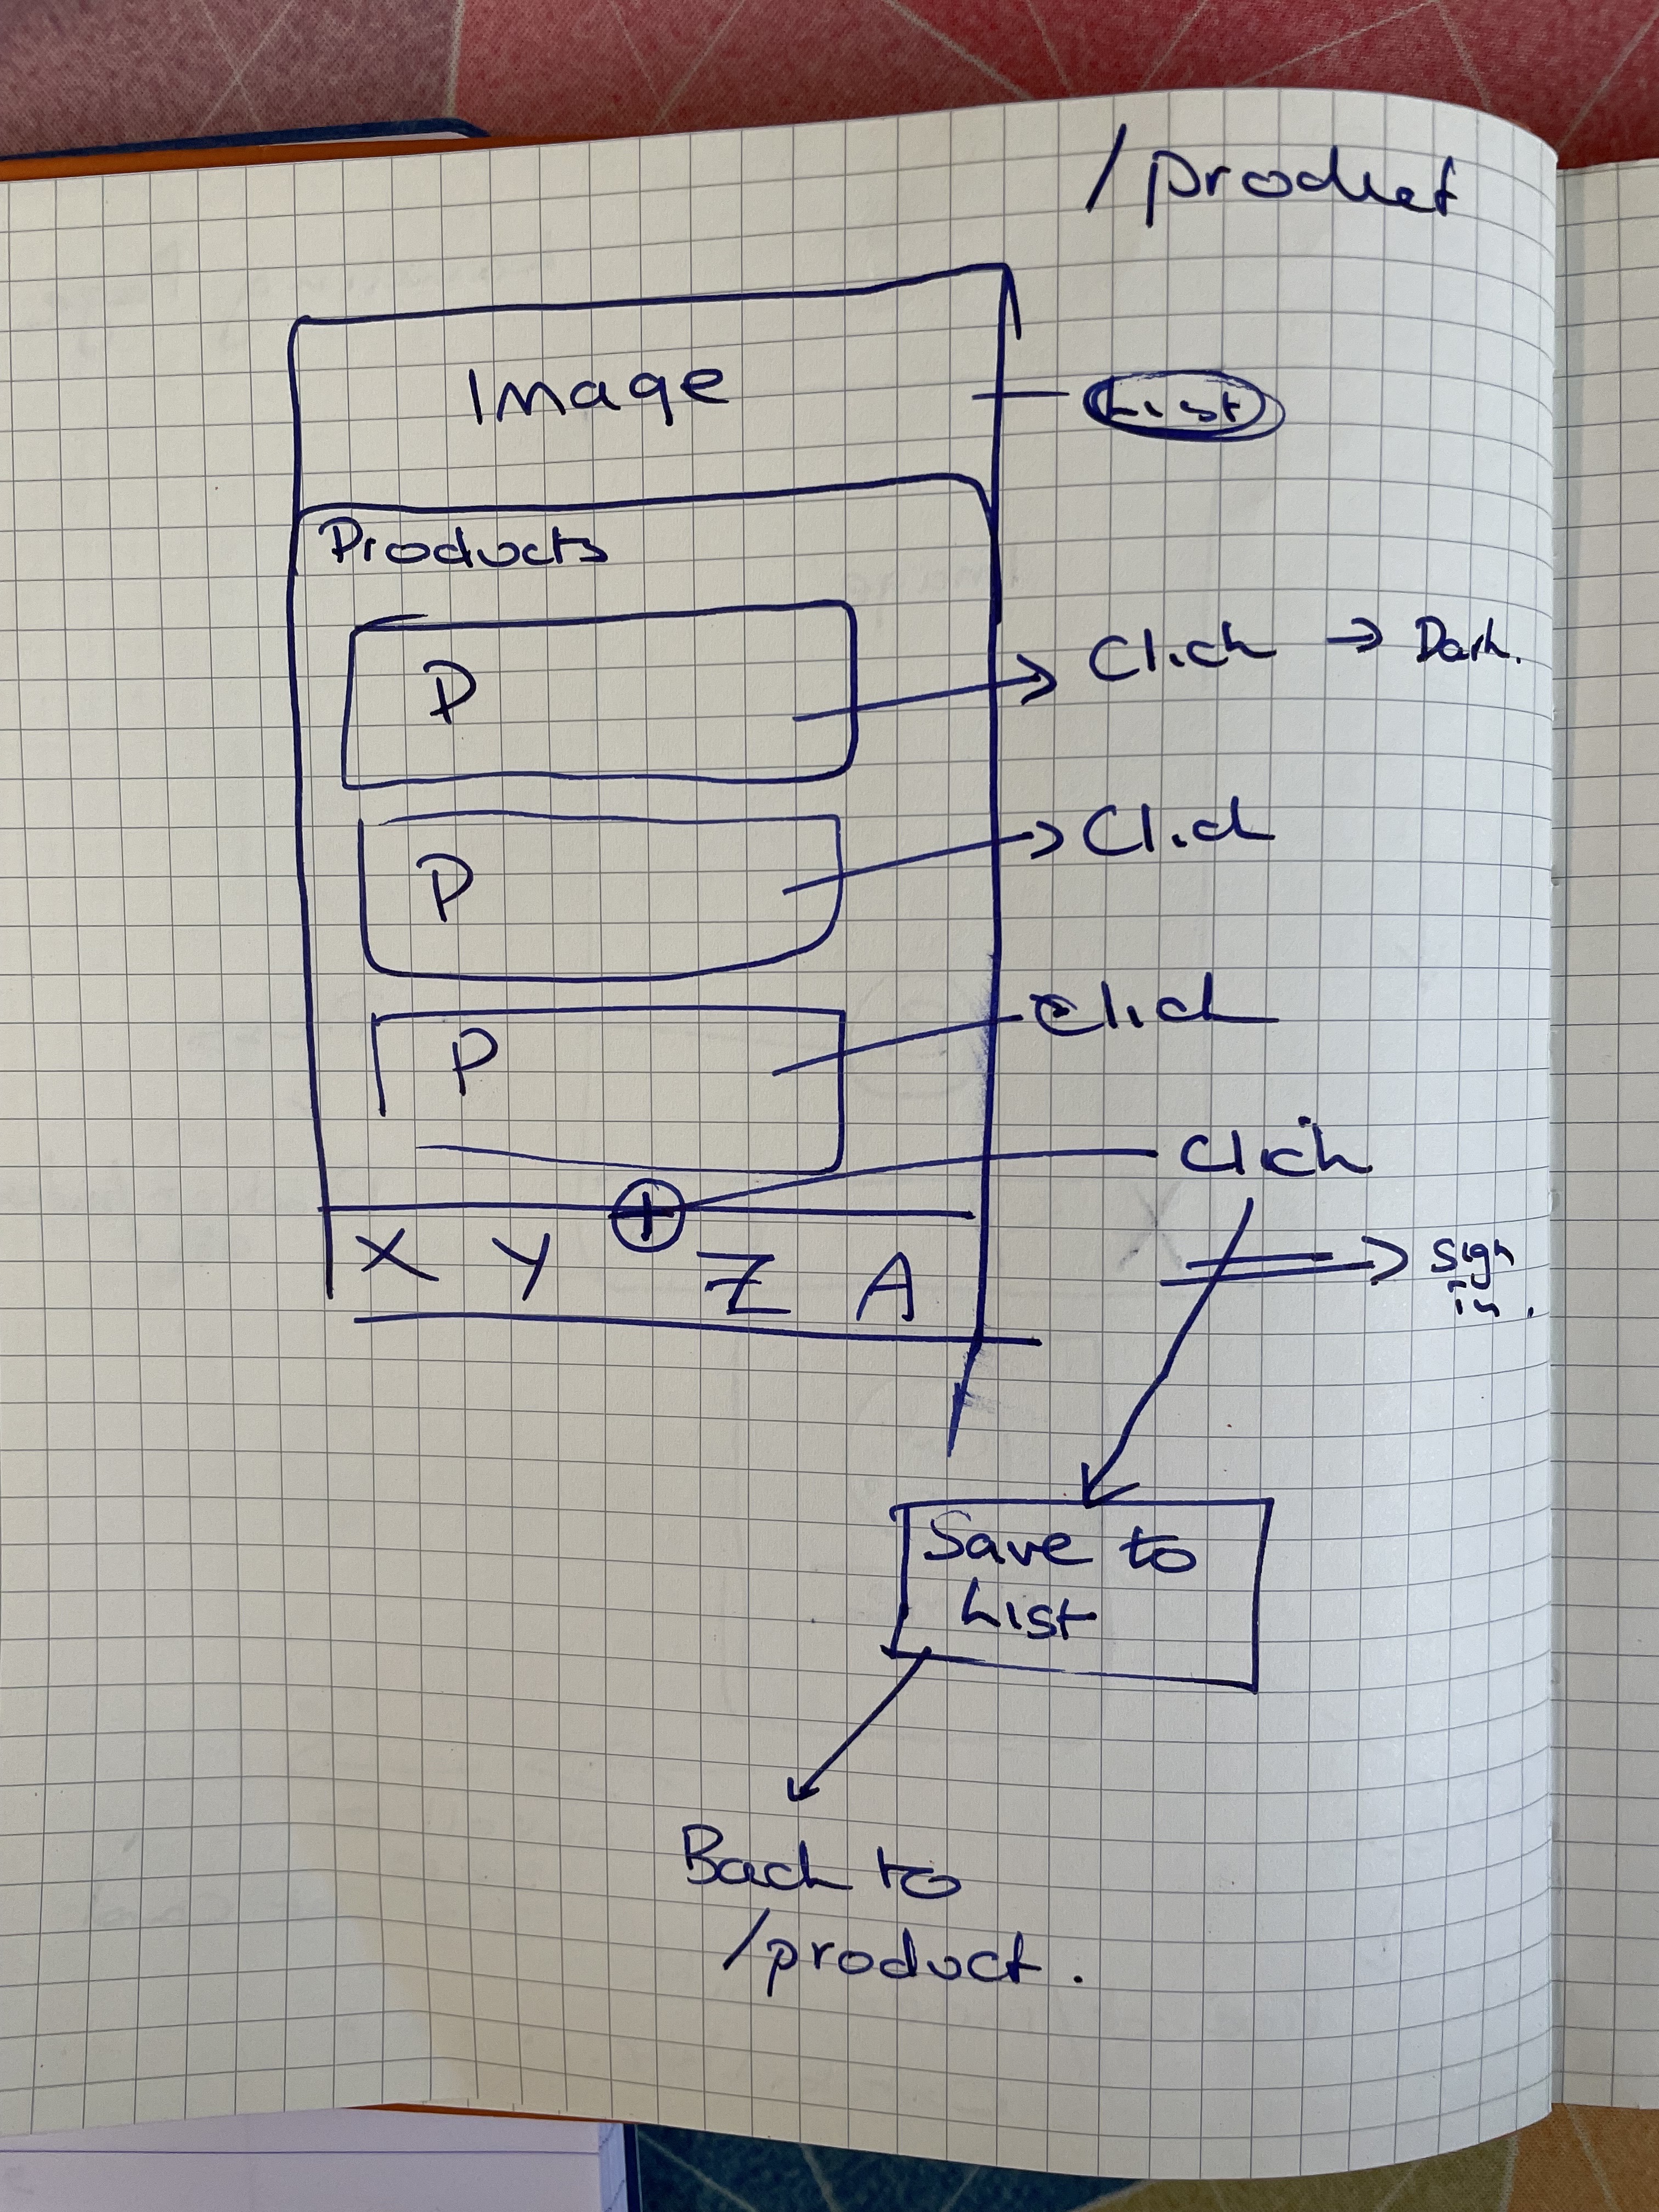 /product
Image
List
Products
P
Click → Dark.
P
Click
P
Click
Click
+
X Y Z A
Sign
in.
Save to
List
Back to
/product.